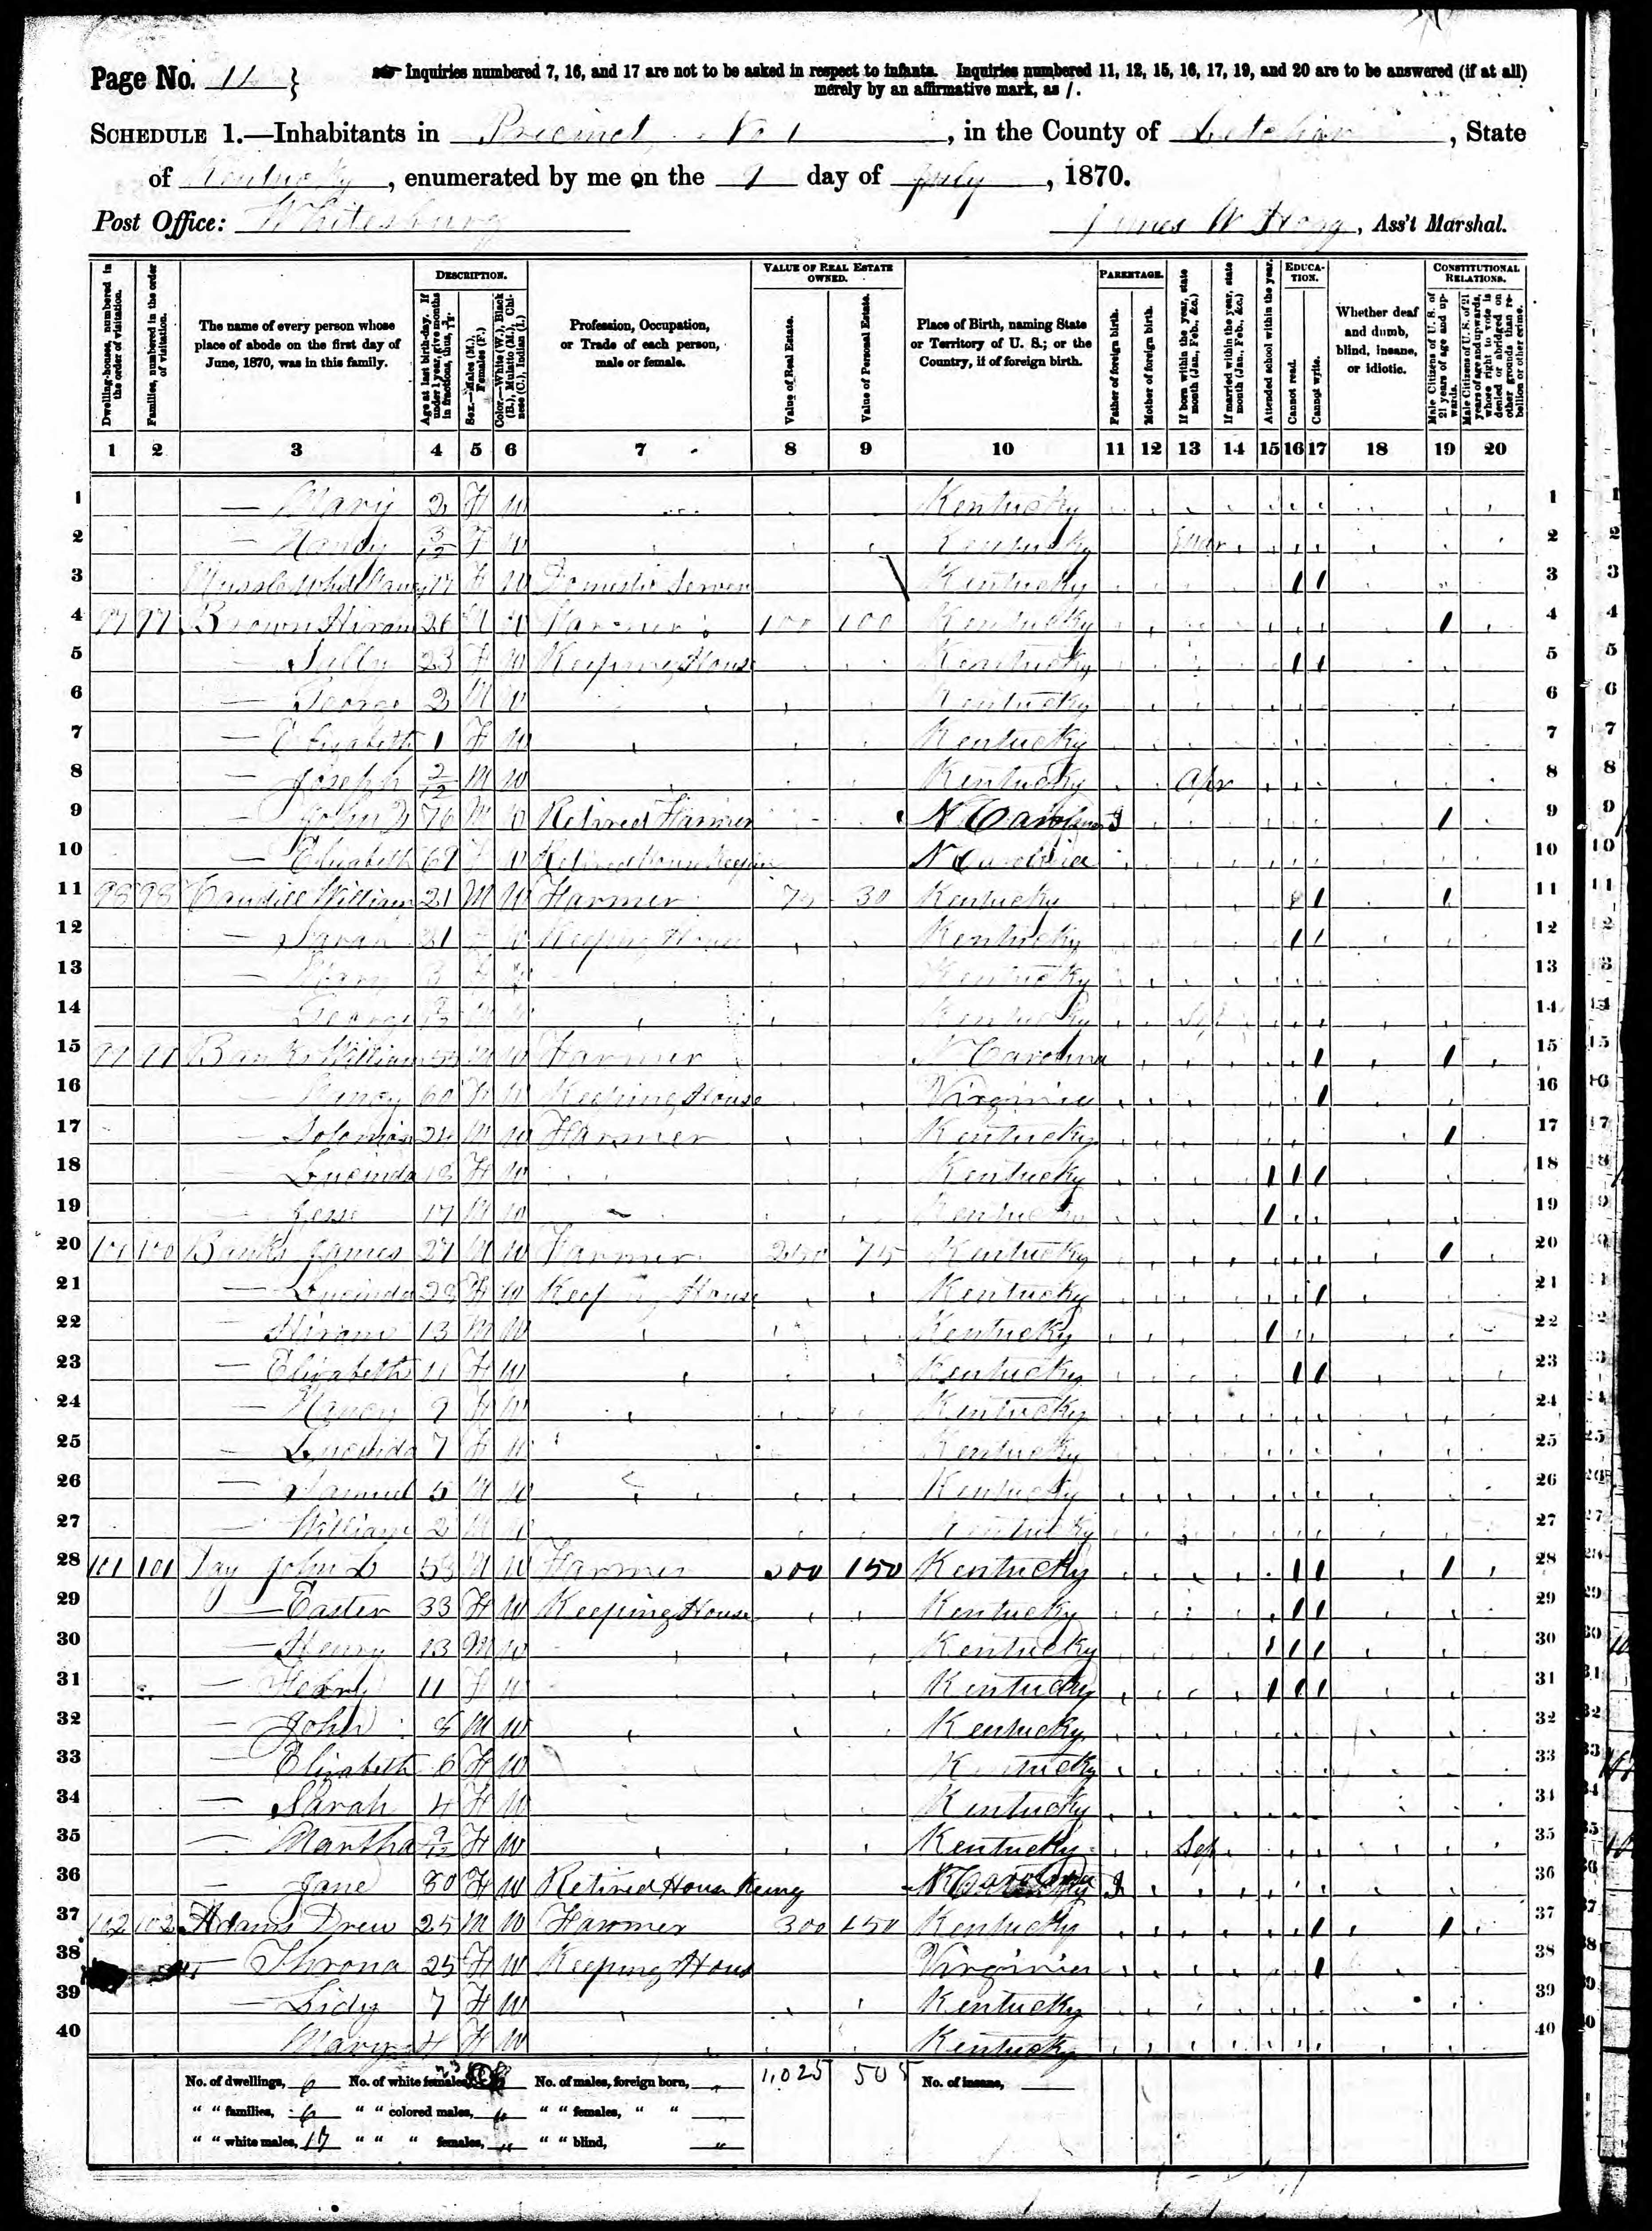 Page No. 11 }
Inquiries numbered 7, 16, and 17 are not to be asked in respect to infants. Inquiries numbered 11, 12, 15, 16, 17, 19, and 20 are to be answered (if at all)
merely by an affirmative mark, as /.
SCHEDULE 1.—Inhabitants in Precinct No 1, in the County of Letcher, State
of Kentucky, enumerated by me on the 9 day of July, 1870.
Post Office: Whitesburg James W Hogg, Ass't Marshal.
Dwelling-houses, numbered in the order of visitation.
Families, numbered in the order of visitation.
The name of every person whose place of abode on the first day of June, 1870, was in this family.
DESCRIPTION.
Age at last birth-day. If under 1 year, give months in fractions, thus, 3/12.
Sex.—Males (M.), Females (F.)
Color.—White (W.), Black (B.), Mulatto (M.), Chinese (C.), Indian (I.)
Profession, Occupation, or Trade of each person, male or female.
VALUE OF REAL ESTATE OWNED.
Value of Real Estate.
Value of Personal Estate.
Place of Birth, naming State or Territory of U. S.; or the Country, if of foreign birth.
PARENTAGE.
Father of foreign birth.
Mother of foreign birth.
If born within the year, state month (Jan., Feb., &c.)
If married within the year, state month (Jan., Feb., &c.)
EDUCATION.
Attended school within the year.
Cannot read.
Cannot write.
Whether deaf and dumb, blind, insane, or idiotic.
CONSTITUTIONAL RELATIONS.
Male Citizens of U. S. of 21 years of age and upwards.
Male Citizens of U. S. of 21 years of age and upwards, whose right to vote is denied or abridged on other grounds than rebellion or other crime.
1 2 3 4 5 6 7 8 9 10 11 12 13 14 15 16 17 18 19 20
1 — Mary 2 F W Kentucky 1
2 — 3/12 F W Kentucky 2
3 17 F W Domestic Servan Kentucky / / 3
4 97 97 Brown Hiram 26 M W Farmer 100 100 Kentucky / 4
5 — Sally 23 F W Keeping House Kentucky / / 5
6 — George 2 M W Kentucky 6
7 — Elizabeth 1 F W Kentucky 7
8 — Joseph 2/12 M W Kentucky Apr 8
9 — John 76 M W Retired Farmer N Carolina / 9
10 — Elizabeth 69 F W Retired House Keepin N Carolina 10
11 98 98 Caudill William 21 M W Farmer 75 30 Kentucky / / 11
12 — Sarah 21 W Keeping House Kentucky / / 12
13 — Mary Kentucky 13
14 — George M W Kentucky Sep 14
15 Banks William M W Farmer N Carolina / / 15
16 — Nancy 60 F W Keeping House Virginia / 16
17 — Solomon 24 M W Farmer Kentucky / 17
18 — Lucinda 18 F W Kentucky / / / 18
19 — Jesse 17 M W Kentucky / 19
20 100 100 Banks James 27 M W Farmer 250 75 Kentucky / 20
21 — Lucinda 28 F W Keeping House Kentucky / 21
22 — Hiram 13 M W Kentucky / 22
23 — Elizabeth 11 F W Kentucky / / 23
24 — 9 F W Kentucky 24
25 — Lucinda 7 F W Kentucky 25
26 — Samuel 5 M W Kentucky 26
27 — William 2 M W Kentucky 27
28 101 101 Day John D 53 M W Farmer 200 150 Kentucky / / / 28
29 — Easter 33 F W Keeping House Kentucky / / 29
30 — Henry 13 M W Kentucky / / / 30
31 — 11 F W Kentucky / / / 31
32 — John 8 M W Kentucky 32
33 — Elizabeth 6 F W Kentucky 33
34 — Sarah 4 F W Kentucky 34
35 — Martha 9/12 F W Kentucky Sep 35
36 — Jane 80 F W Retired House Keeing N Carolina 36
37 102 102 Adams Drew 25 M W Farmer 300 150 Kentucky / / 37
38 — Throna 25 F W Keeping Hous Virginia / 38
39 — Lidy 7 F W Kentucky 39
40 Mary 4 F W Kentucky 40
No. of dwellings, 6 No. of white females, 23 No. of males, foreign born, 1,025 505 No. of insane,
" " families, 6 " " colored males, " " females, " "
" " white males, 17 " " " females, " " blind,